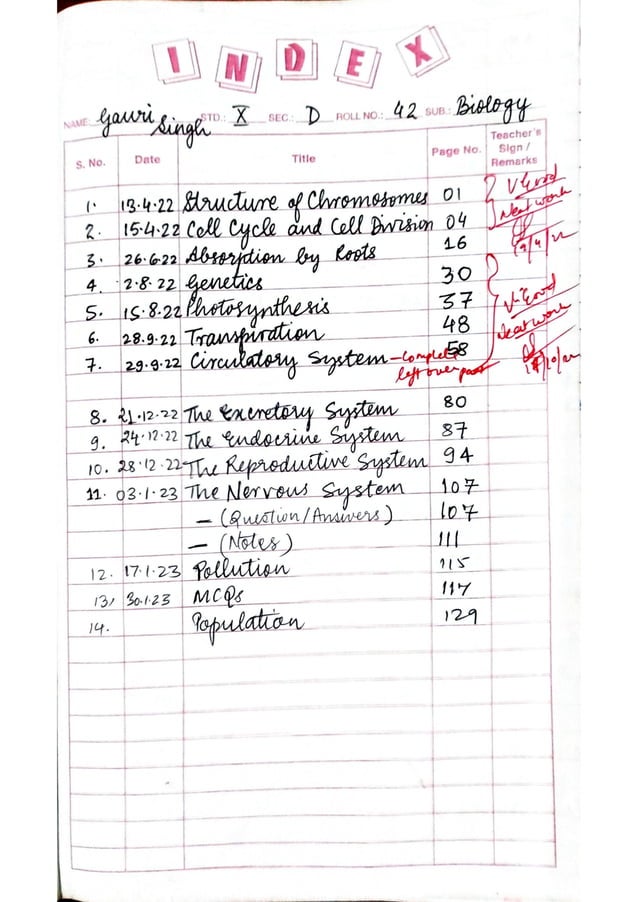 INDEX
NAME: Gauri Singh STD.: X SEC.: D ROLL NO.: 42 SUB.: Biology
S. No. Date Title Page No. Teacher's Sign / Remarks
1. 13.4.22 Structure of Chromosomes 01 V.Good
2. 15.4.22 Cell Cycle and Cell Division 04 Neat work
3. 26.6.22 Absorption by Roots 16
4. 2.8.22 Genetics 30
5. 15.8.22 Photosynthesis 37 V.Good
6. 28.9.22 Transpiration 48 Neat work
7. 29.9.22 Circulatory System 58
– Complete left over part
8. 21.12.22 The Excretory System 80
9. 24.12.22 The Endocrine System 87
10. 28.12.22 The Reproductive System 94
11. 03.1.23 The Nervous System 107
– (Question/Answers) 107
– (Notes) 111
12. 17.1.23 Pollution 115
13, 30.1.23 MCQs 117
14. Population 129